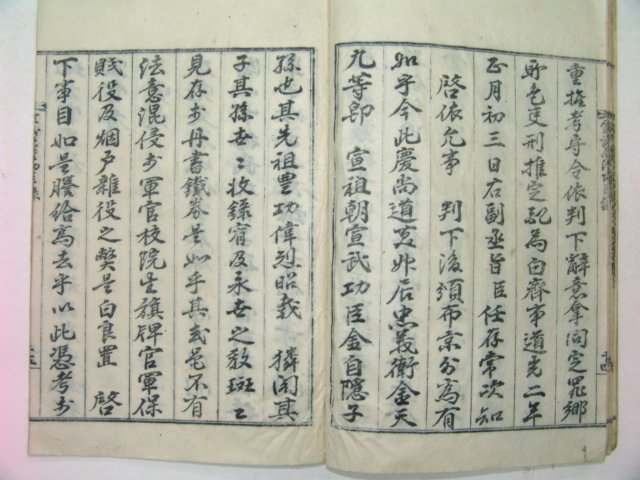 重推考守令依判下辭意拿問定罪鄕
所色吏刑推定配爲白齊事道光二年
正月初三日右副丞旨臣任存常次知
啓依允事 判下後頒布京外爲有
如乎今此慶尙道 忠義衛金天
九等卽 宣祖朝宣武功臣金自隱子
孫也其先祖豊功偉烈昭載 璘聞其
子其孫世〻收錄宥及永世之敎班〻
見存於丹書鐵券是如乎其或邑不有
法意混侵於軍官校院生旗牌官軍保
賤役及烟戶雜役之弊是白良置 啓
下事目如是謄給爲去乎以此憑考於